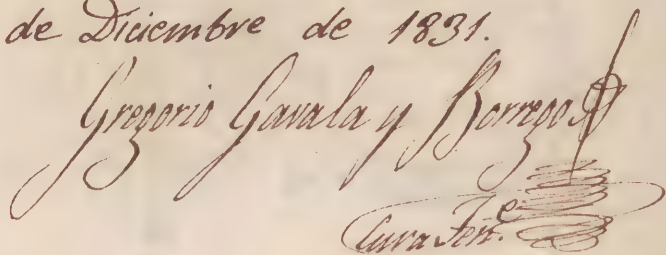 de Diciembre de 1831.
Gregorio Gavala y Borrego
Cura Ten.e